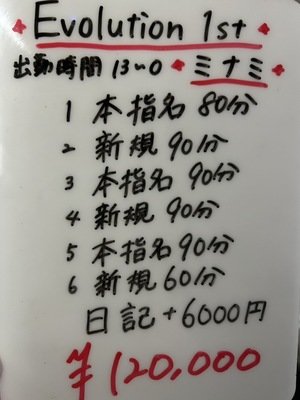 Evolution 1st
出勤時間 13〜0 ミナミ
1 本指名 80分
2 新規 90分
3 本指名 90分
4 新規 90分
5 本指名 90分
6 新規 60分
日記+6000円
¥120,000